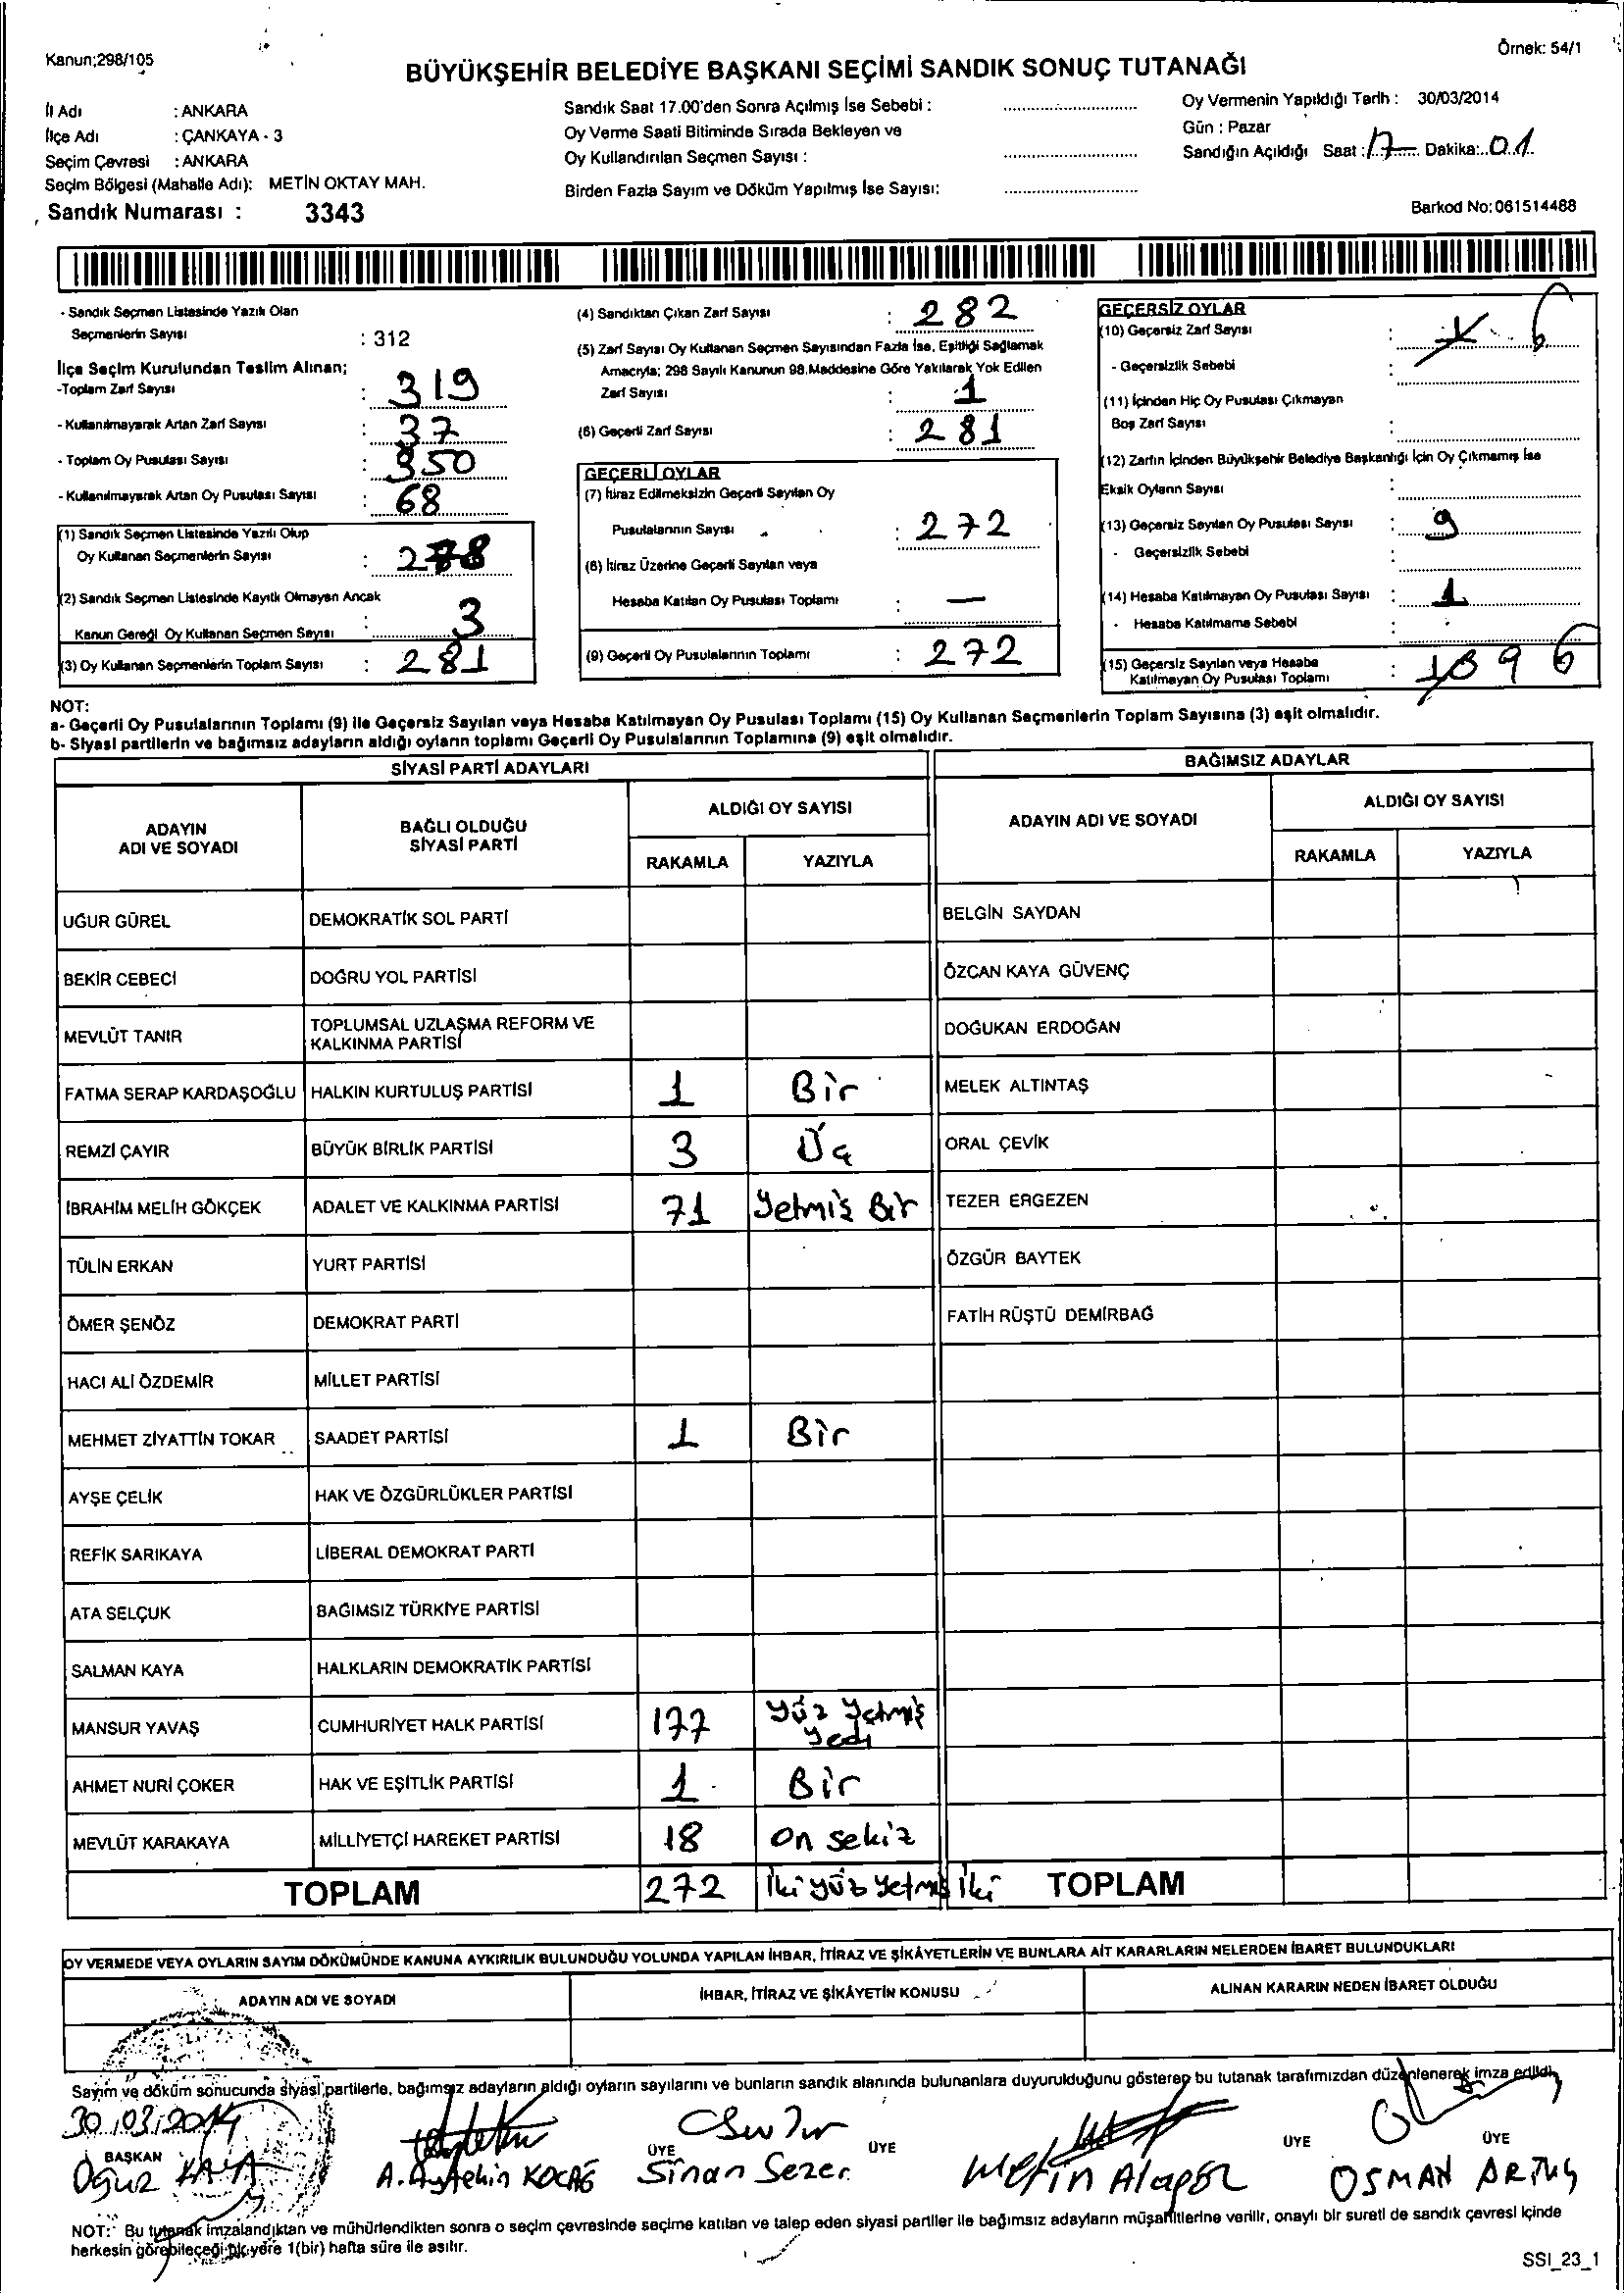 Kanun;298/105
Örnek: 54/1
BÜYÜKŞEHİR BELEDİYE BAŞKANI SEÇİMİ SANDIK SONUÇ TUTANAĞI
İl Adı : ANKARA
İlçe Adı : ÇANKAYA - 3
Seçim Çevresi : ANKARA
Seçim Bölgesi (Mahalle Adı): METİN OKTAY MAH.
Sandık Numarası : 3343
Sandık Saat 17.00'den Sonra Açılmış İse Sebebi :
Oy Verme Saati Bitiminde Sırada Bekleyen ve
Oy Kullandırılan Seçmen Sayısı :
Birden Fazla Sayım ve Döküm Yapılmış İse Sayısı:
Oy Vermenin Yapıldığı Tarih : 30/03/2014
Gün : Pazar
Sandığın Açıldığı Saat : 17 Dakika: 01
Barkod No: 061514488
- Sandık Seçmen Listesinde Yazılı Olan
Seçmenlerin Sayısı : 312
İlçe Seçim Kurulundan Teslim Alınan;
-Toplam Zarf Sayısı : 319
- Kullanılmayarak Artan Zarf Sayısı : 37
- Toplam Oy Pusulası Sayısı : 350
- Kullanılmayarak Artan Oy Pusulası Sayısı : 68
(1) Sandık Seçmen Listesinde Yazılı Olup
Oy Kullanan Seçmenlerin Sayısı : 278
(2) Sandık Seçmen Listesinde Kayıtlı Olmayan Ancak
Kanun Gereği Oy Kullanan Seçmen Sayısı : 3
(3) Oy Kullanan Seçmenlerin Toplam Sayısı : 281
(4) Sandıktan Çıkan Zarf Sayısı : 282
(5) Zarf Sayısı Oy Kullanan Seçmen Sayısından Fazla İse, Eşitliği Sağlamak
Amacıyla; 298 Sayılı Kanunun 98.Maddesine Göre Yakılarak Yok Edilen
Zarf Sayısı : 1
(6) Geçerli Zarf Sayısı : 281
GEÇERLİ OYLAR
(7) İtiraz Edilmeksizin Geçerli Sayılan Oy
Pusulalarının Sayısı : 272
(8) İtiraz Üzerine Geçerli Sayılan veya
Hesaba Katılan Oy Pusulası Toplamı : —
(9) Geçerli Oy Pusulalarının Toplamı : 272
GEÇERSİZ OYLAR
(10) Geçersiz Zarf Sayısı : 6
- Geçersizlik Sebebi :
(11) İçinden Hiç Oy Pusulası Çıkmayan
Boş Zarf Sayısı :
(12) Zarfın İçinden Büyükşehir Belediye Başkanlığı İçin Oy Çıkmamış İse
Eksik Oyların Sayısı :
(13) Geçersiz Sayılan Oy Pusulası Sayısı : 9
- Geçersizlik Sebebi :
(14) Hesaba Katılmayan Oy Pusulası Sayısı : 1
- Hesaba Katılmama Sebebi :
(15) Geçersiz Sayılan veya Hesaba
Katılmayan Oy Pusulası Toplamı : 9 6
NOT:
a- Geçerli Oy Pusulalarının Toplamı (9) ile Geçersiz Sayılan veya Hesaba Katılmayan Oy Pusulası Toplamı (15) Oy Kullanan Seçmenlerin Toplam Sayısına (3) eşit olmalıdır.
b- Siyasi partilerin ve bağımsız adayların aldığı oyların toplamı Geçerli Oy Pusulalarının Toplamına (9) eşit olmalıdır.
SİYASİ PARTİ ADAYLARI
BAĞIMSIZ ADAYLAR
ADAYIN
ADI VE SOYADI
BAĞLI OLDUĞU
SİYASİ PARTİ
ALDIĞI OY SAYISI
RAKAMLA YAZIYLA
ADAYIN ADI VE SOYADI
ALDIĞI OY SAYISI
RAKAMLA YAZIYLA
UĞUR GÜREL DEMOKRATİK SOL PARTİ BELGİN SAYDAN
BEKİR CEBECİ DOĞRU YOL PARTİSİ ÖZCAN KAYA GÜVENÇ
MEVLÜT TANIR TOPLUMSAL UZLAŞMA REFORM VE
KALKINMA PARTİSİ DOĞUKAN ERDOĞAN
FATMA SERAP KARDAŞOĞLU HALKIN KURTULUŞ PARTİSİ 1 Bir MELEK ALTINTAŞ
REMZİ ÇAYIR BÜYÜK BİRLİK PARTİSİ 3 Üç ORAL ÇEVİK
İBRAHİM MELİH GÖKÇEK ADALET VE KALKINMA PARTİSİ 71 Yetmiş Bir TEZER ERGEZEN
TÜLİN ERKAN YURT PARTİSİ ÖZGÜR BAYTEK
ÖMER ŞENÖZ DEMOKRAT PARTİ FATİH RÜŞTÜ DEMİRBAĞ
HACI ALİ ÖZDEMİR MİLLET PARTİSİ
MEHMET ZİYATTİN TOKAR SAADET PARTİSİ 1 Bir
AYŞE ÇELİK HAK VE ÖZGÜRLÜKLER PARTİSİ
REFİK SARIKAYA LİBERAL DEMOKRAT PARTİ
ATA SELÇUK BAĞIMSIZ TÜRKİYE PARTİSİ
SALMAN KAYA HALKLARIN DEMOKRATİK PARTİSİ
MANSUR YAVAŞ CUMHURİYET HALK PARTİSİ 177 Yüz Yetmiş
Yedi
AHMET NURİ ÇOKER HAK VE EŞİTLİK PARTİSİ 1 Bir
MEVLÜT KARAKAYA MİLLİYETÇİ HAREKET PARTİSİ 18 on sekiz
TOPLAM 272 İki yüz yetmiş iki TOPLAM
OY VERMEDE VEYA OYLARIN SAYIM DÖKÜMÜNDE KANUNA AYKIRILIK BULUNDUĞU YOLUNDA YAPILAN İHBAR, İTİRAZ VE ŞİKÂYETLERİN VE BUNLARA AİT KARARLARIN NELERDEN İBARET BULUNDUKLARI
ADAYIN ADI VE SOYADI İHBAR, İTİRAZ VE ŞİKÂYETİN KONUSU ALINAN KARARIN NEDEN İBARET OLDUĞU
Sayım ve döküm sonucunda siyasi partilerle, bağımsız adayların aldığı oyların sayılarını ve bunların sandık alanında bulunanlara duyurulduğunu gösteren bu tutanak tarafımızdan düzenlenerek imza edildi.
30.03.2014
BAŞKAN ÜYE ÜYE ÜYE ÜYE
Oğuz KAYA A.Aytekin KOCAĞ Sinan Sezer Metin Alagöz OSMAN ARTUŞ
NOT: Bu tutanak imzalandıktan ve mühürlendikten sonra o seçim çevresinde seçime katılan ve talep eden siyasi partiler ile bağımsız adayların müşahitlerine verilir, onaylı bir sureti de sandık çevresi içinde
herkesin görebileceği bir yere 1(bir) hafta süre ile asılır.
SSI_23_1